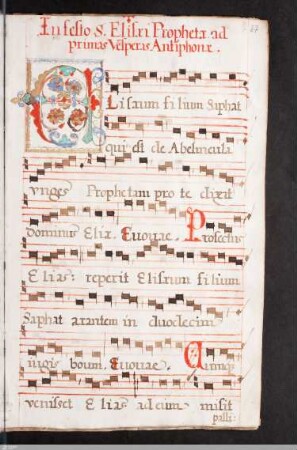 In festo S. Elisei Prophetæ ad
primas Vesperas Antiphonæ.
Elisæum filium Saphat
qui est de Abelmeula
vnges Prophetam pro te dixit
Dominus Eliæ. Euouae. Profectus
Elias: reperit Elisæum filium
Saphat arantem in duodecim
iugis boum. Euouae. Cumq;
venisset Elias ad eum misit
palli: